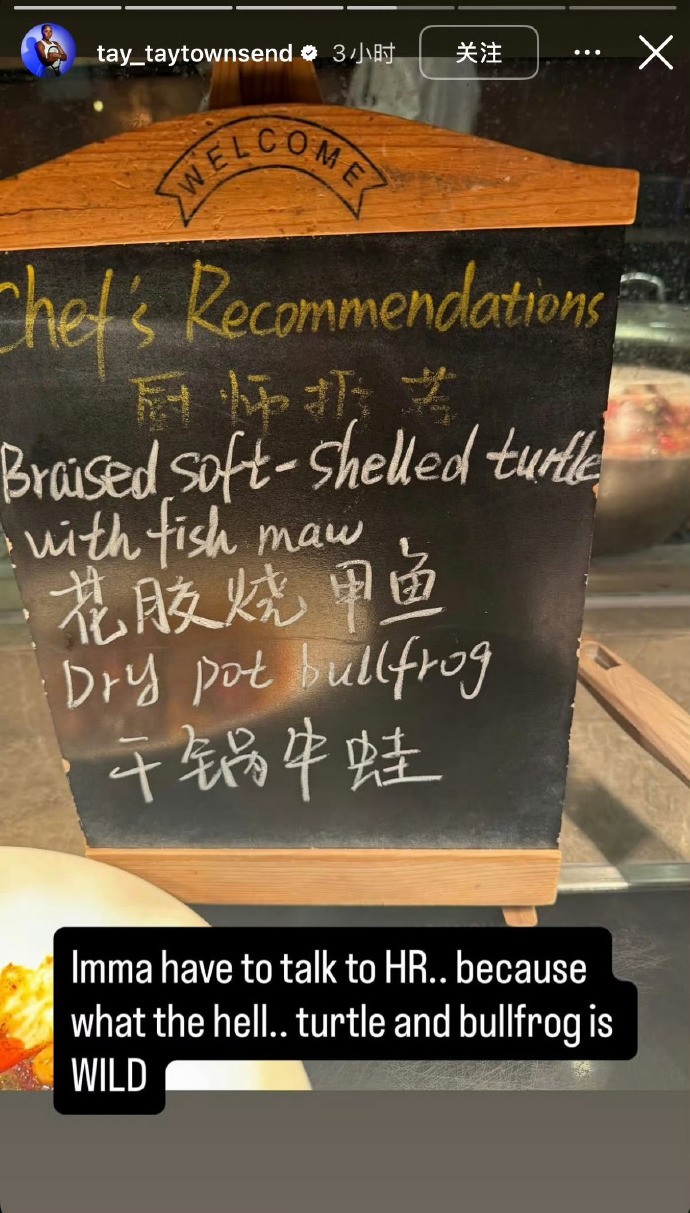 tay_taytownsend 3小时 关注
WELCOME
Chef's Recommendations
厨师推荐
Braised soft-shelled turtle
with fish maw
花胶烧甲鱼
Dry pot bullfrog
干锅牛蛙
Imma have to talk to HR.. because
what the hell.. turtle and bullfrog is
WILD